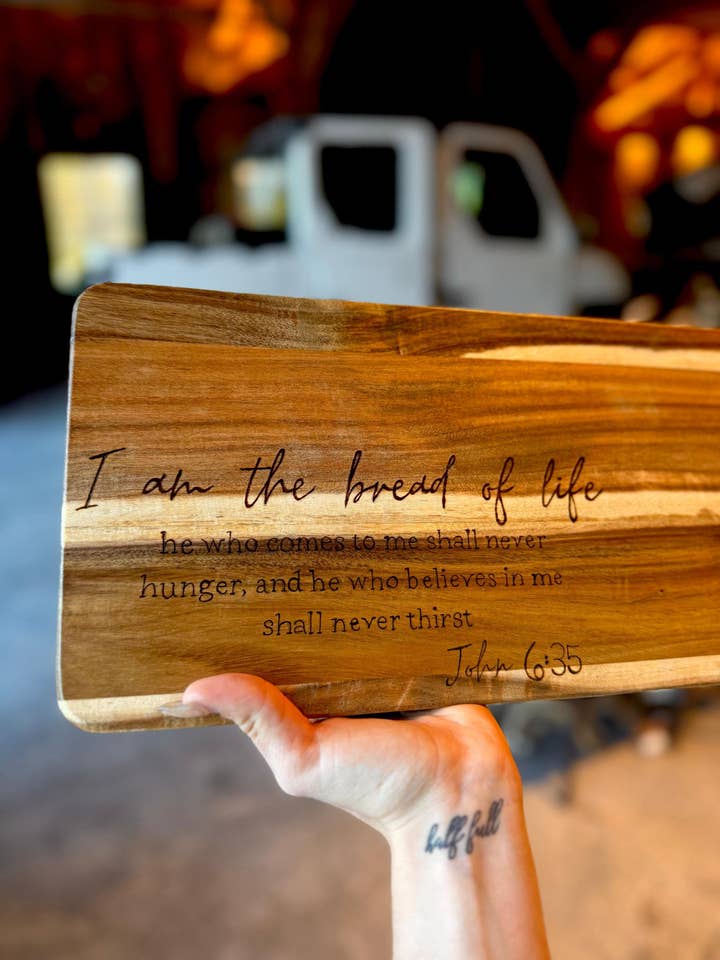 I am the bread of life
he who comes to me shall never
hunger, and he who believes in me
shall never thirst
John 6:35
half full